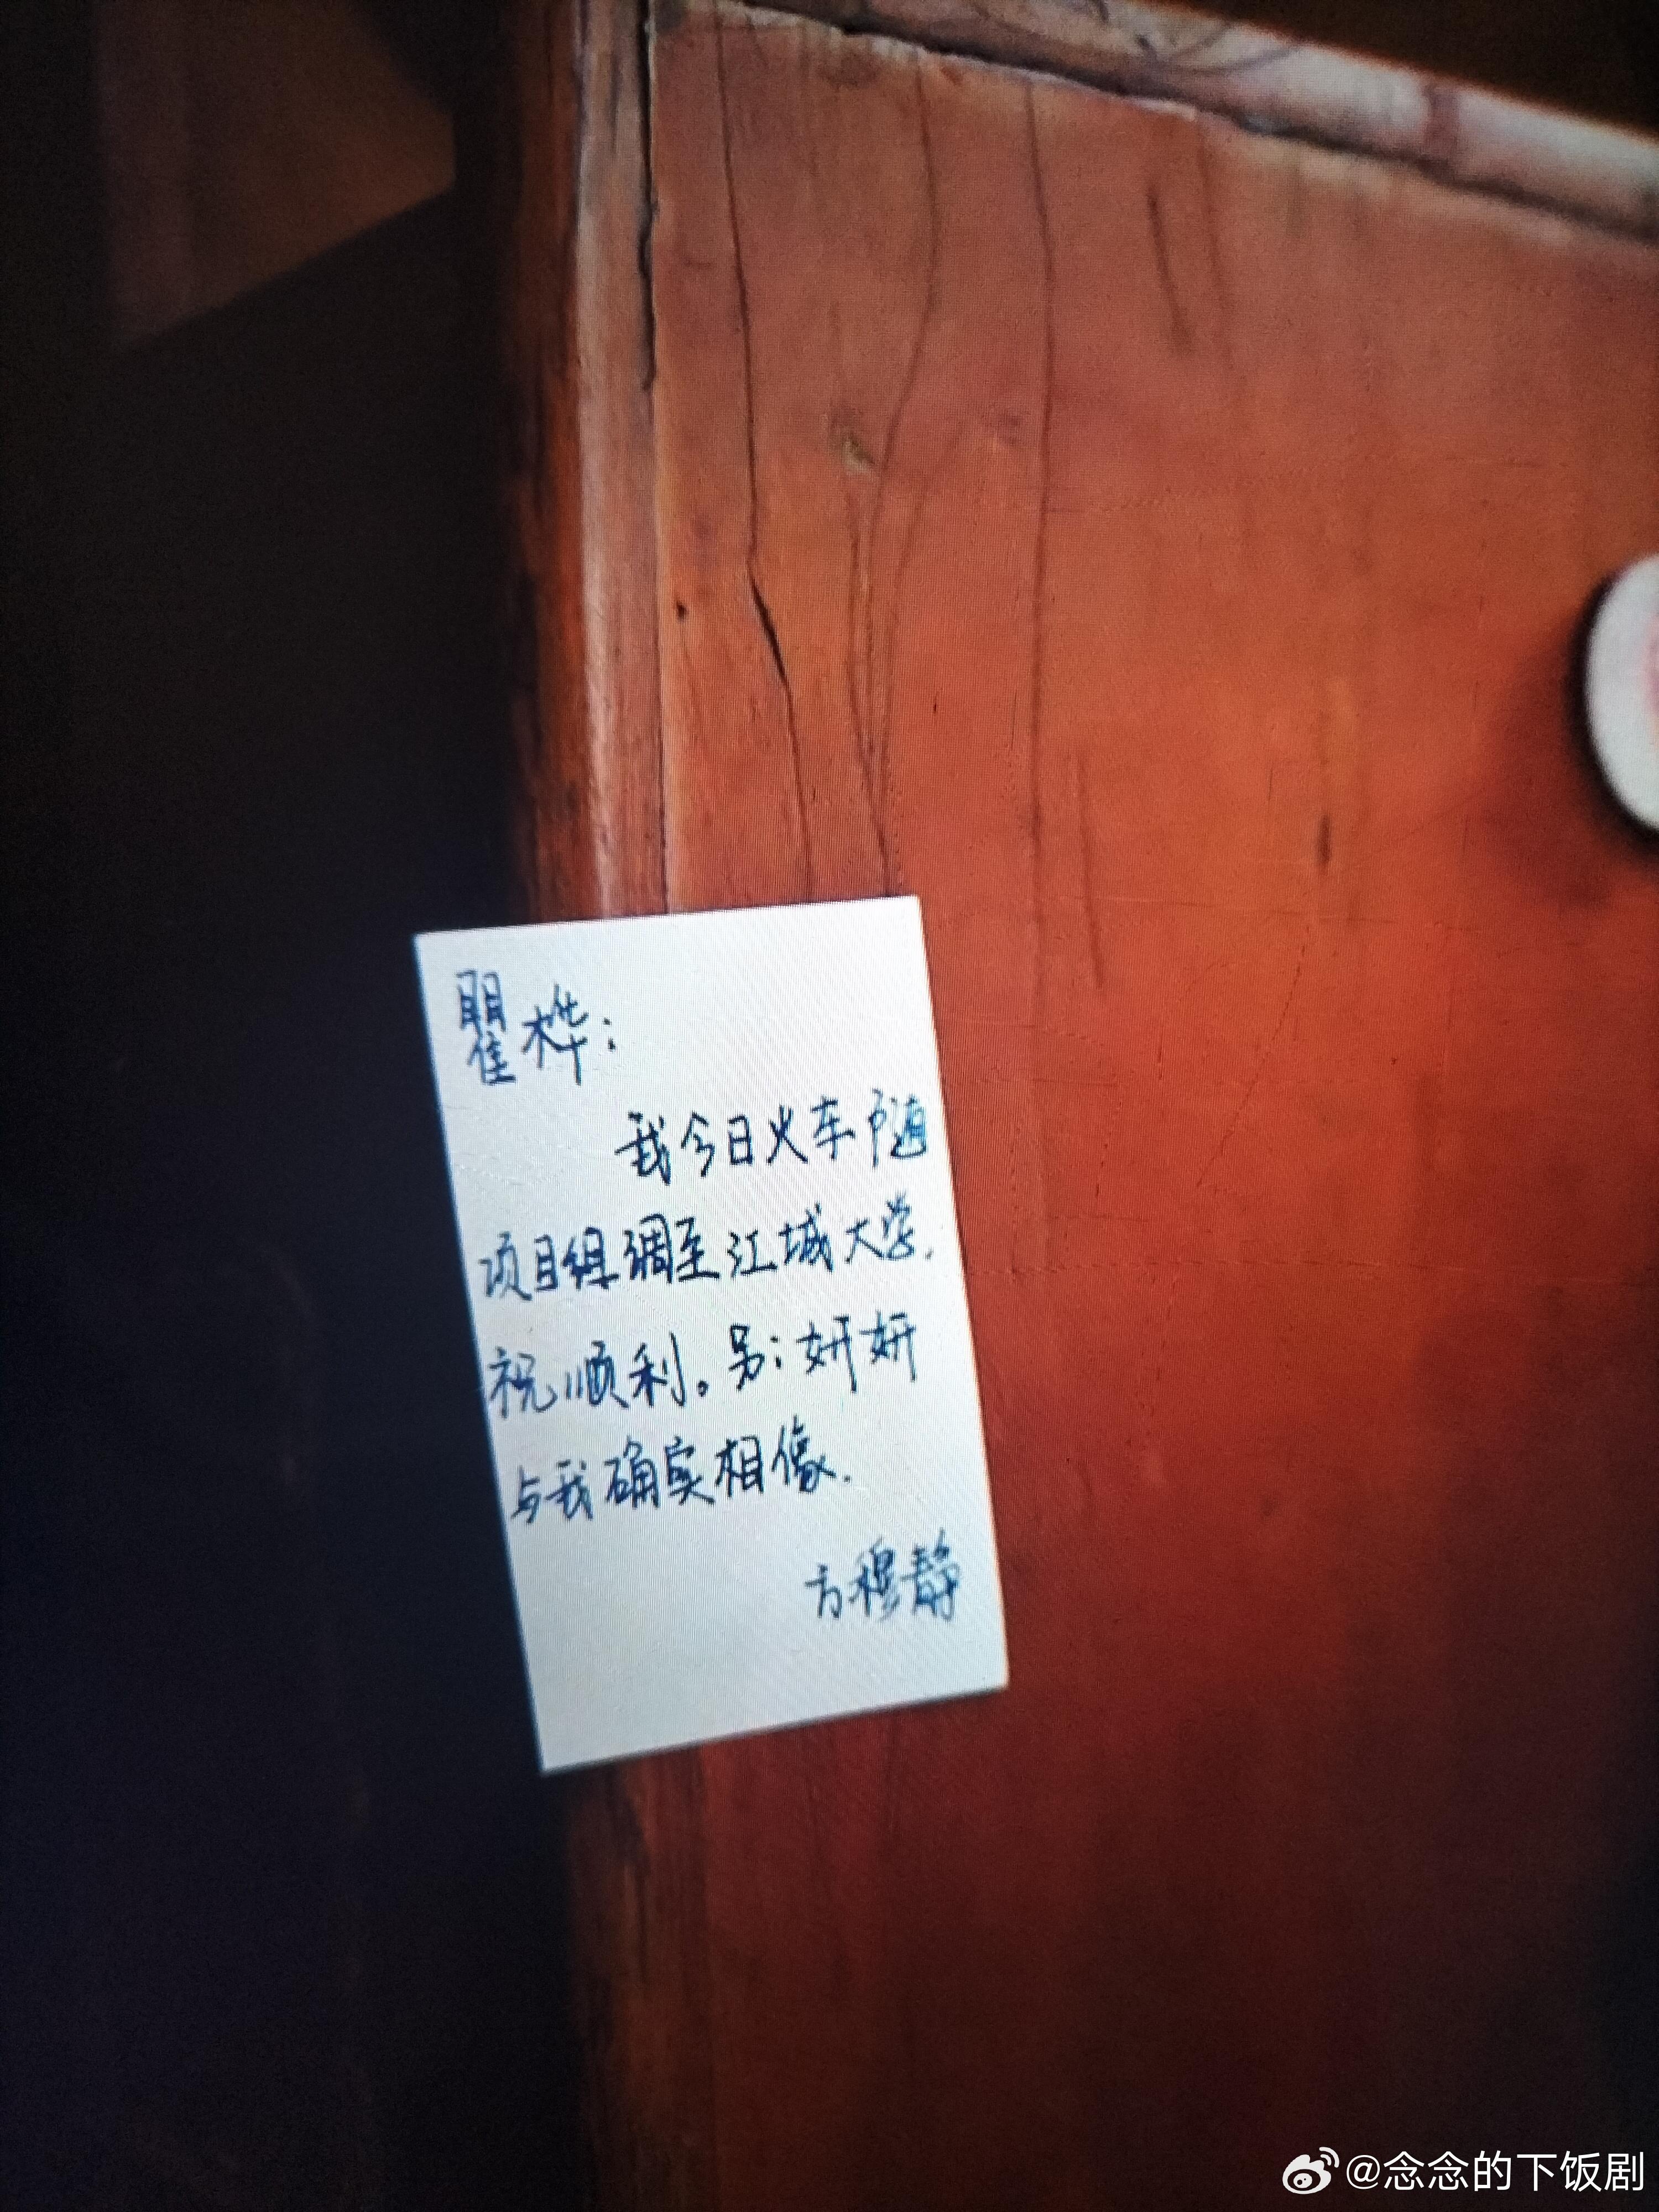 瞿桦：
我今日火车随
项目组调至江城大学.
祝顺利。另：妍妍
与我确实相像.
方穆静
@念念的下饭剧